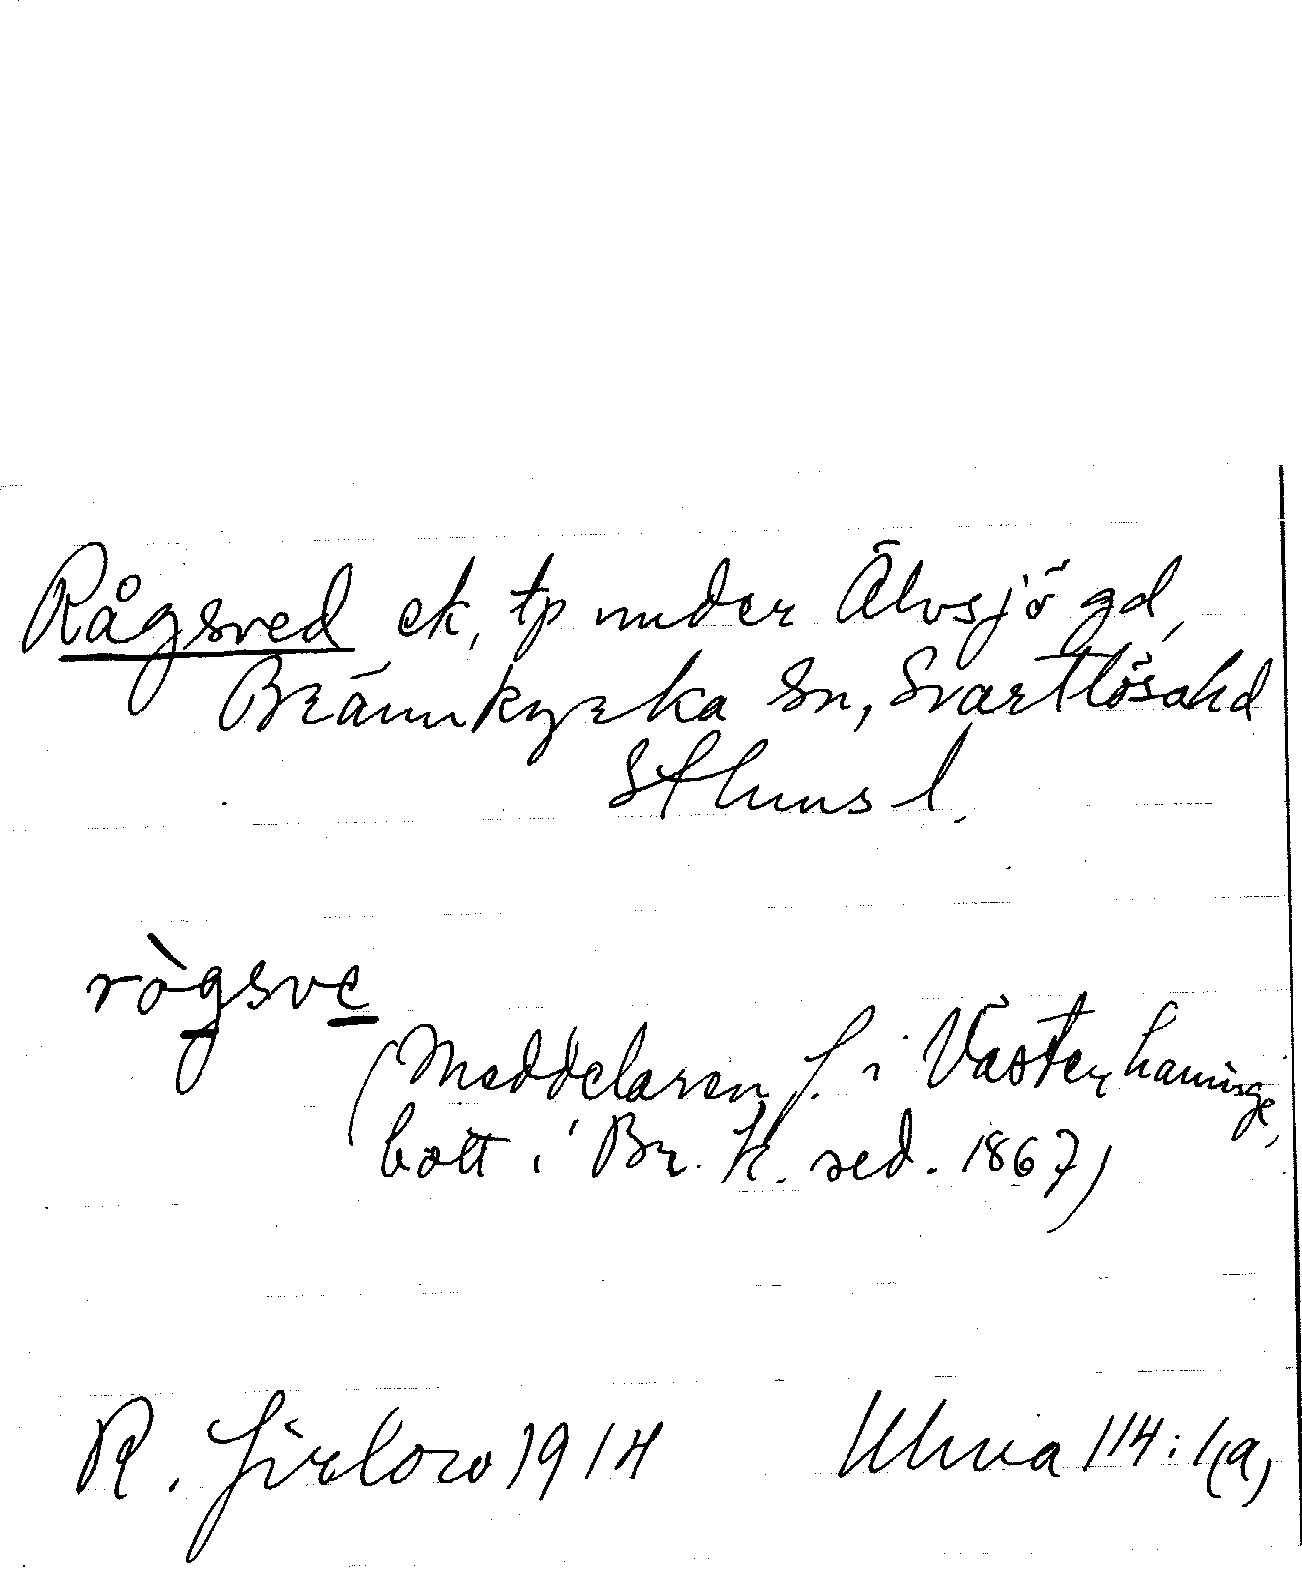 Rågsved ek, tp under Älvsjö gd,
Brännkyrka sn, Svartlösa hd
Sthlms l.
rògsve
(Meddelaren f. i Västerhaninge,
bott i Br. k. sed. 1867)
R. Jirlow 1914 Ulma 114:4a,